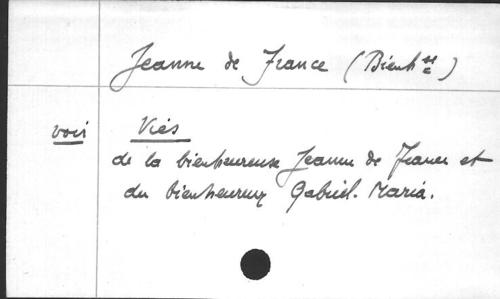 Jeanne de France (Bienh sse)
voir Vies
de la bienheureuse Jeanne de France et
du bienheureux Gabriel. Maria.